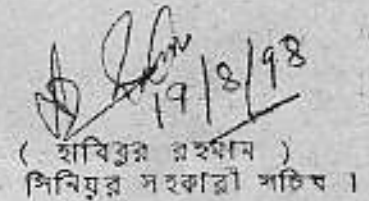 19/8/98
( হাবিবুর রহমান )
সিনিয়র সহকারী সচিব ।